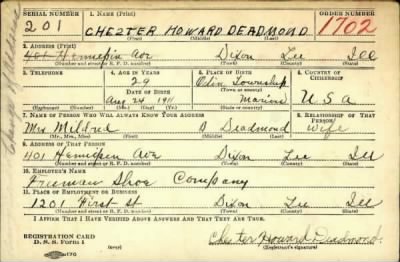 SERIAL NUMBER 1. NAME (Print) ORDER NUMBER
201 CHEZTER HOWARD DEADMOND 1702
(First) (Middle) (Last)
2. ADDRESS (Print)
401 Hennepin Ave Dixon Lee Ill
(Number and street or R. F. D. number) (Town) (County) (State)
3. TELEPHONE 4. AGE IN YEARS 5. PLACE OF BIRTH 6. COUNTRY OF CITIZENSHIP
29 Odin Township
DATE OF BIRTH (Town or county)
Aug 24 1911 Marion U S A
(Exchange) (Number) (Mo.) (Day) (Yr.) (State or country)
7. NAME OF PERSON WHO WILL ALWAYS KNOW YOUR ADDRESS 8. RELATIONSHIP OF THAT PERSON
Mrs Mildred Deadmond wife
(Mr., Mrs., Miss) (First) (Middle) (Last)
9. ADDRESS OF THAT PERSON
401 Hennepin Ave Dixon Lee Ill
(Number and street or R. F. D. number) (Town) (County) (State)
10. EMPLOYER'S NAME
Freeman Shoe Company
11. PLACE OF EMPLOYMENT OR BUSINESS
1201 First St Dixon Lee Ill
(Number and street or R. F. D. number) (Town) (County) (State)
I AFFIRM THAT I HAVE VERIFIED ABOVE ANSWERS AND THAT THEY ARE TRUE.
REGISTRATION CARD
D. S. S. Form 1 (over) Chester Howard Deadmond
(Registrant's signature)